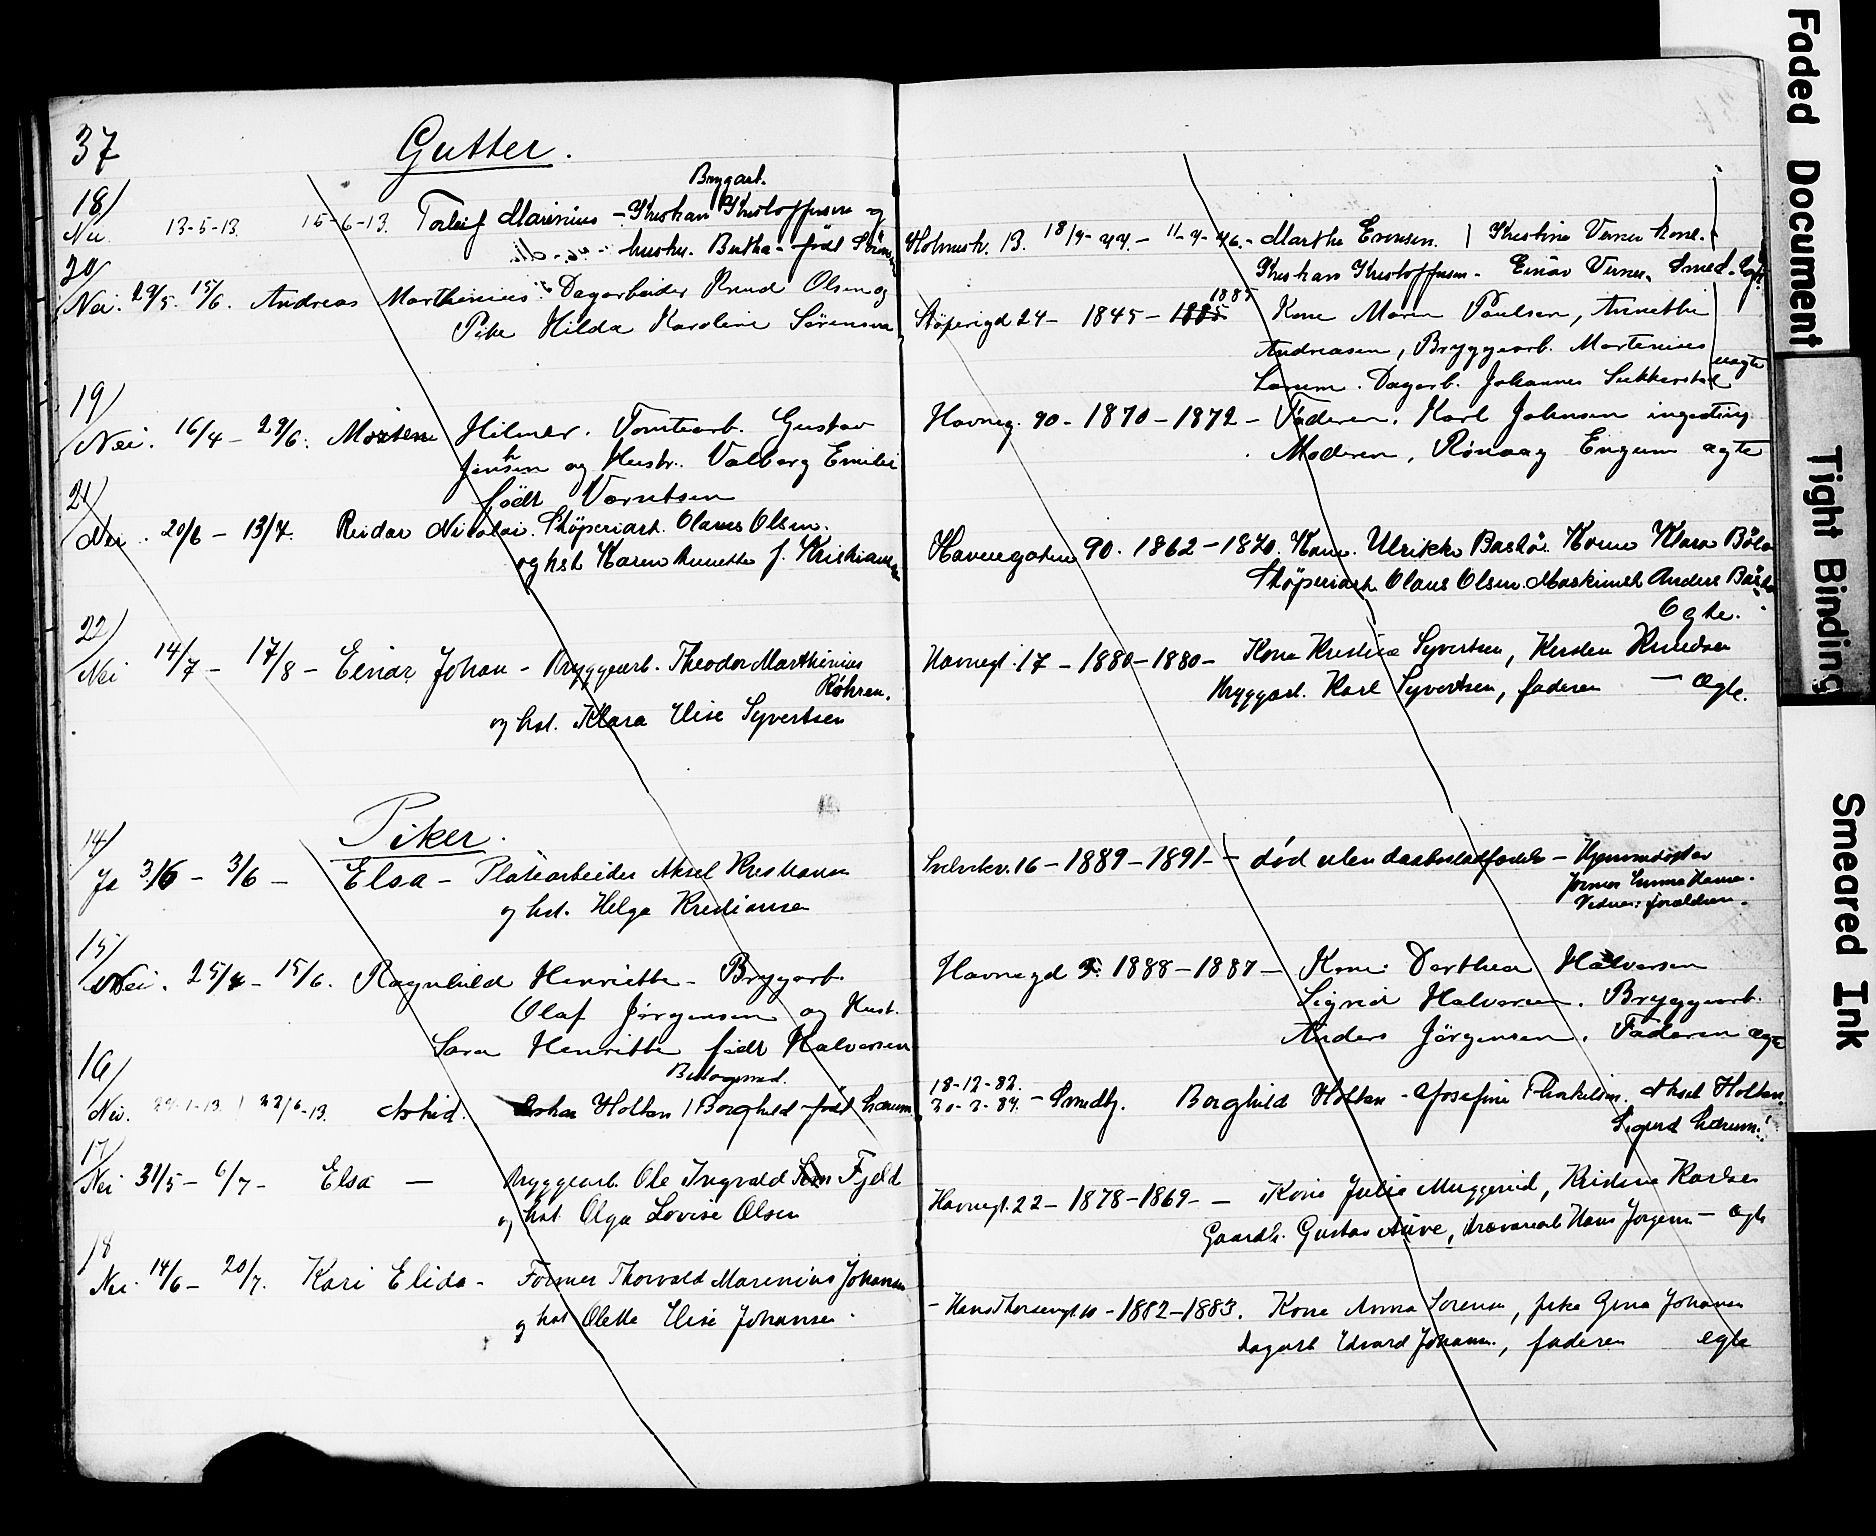 37 Gutter.
Bryggarb.
18/ Nei 13-5-13. 15-6-13. Torleif Marinius - Kristian Kristoffersen og
hustru. Bertha - født
Holmestr. 13. 18/4-44 - 11-4-46. - Marthe Evensen. | Kristine Verner kone.
Kristian Kristoffersen - Einar Verner, Smed.
20/ Nei. 29/5. 15/6. Andreas Marthinius. Dagarbeider Knud Olsen og
Pike Hilda Karoline Sörensen
1885
Støperigd 24 - 1845 - 1885 Kone Maren Paulsen, Annette
Andreasen, Bryggarb. Martenius
Larum. Dagarb. Johannes Sukkerstad uægte
19/ Nei. 16/4 - 29/6. Morten Hilmer. Tomtearb. Gustav
Jensen og Hustr. Valborg Emilie
født Varntsen
Havneg. 90. 1870 - 1872 - Faderen. Karl Johnsen
Moderen, Rønnaug Engum ægte
21/ Nei. 20/6 - 13/7. Reidar Nicolai. Støperiarb. Olaus Olsen.
og hst Karen Annette f. Kristiansen
Havnegaten 90. 1862 - 1870. Kone. Ulrikke Bastö. Kone Klara
Støperiarb. Olaus Olsen. Maskinist Anders
Egte.
22/ Nei 14/7 - 17/8 - Einar Johan - Bryggearb. Theodor Marthinius
Röhren.
og hst. Klara Elise Syvertsen
Havnegt. 17 - 1880 - 1880 - Kone Kristine Syvertsen, Kirsten Knudsen
Bryggarb. Karl Syvertsen, faderen - Ægte.
Piker.
14/ Ja 3/6 - 3/6 - Elsa - Platearbeider Aksel Kristiansen
og hst. Helga Kristiansen
16 - 1889 - 1891 - - død uten daab - Hjemmedøpt av
Vidner: forældrene.
15/ Nei. 25/4 - 15/6. Ragnhild Henriette - Bryggarb.
Olaf Jörgensen og Hust.
Sara Henriette født Halvorsen
Havnegd 5. 1888 - 1887 - Kone: Dorthea Halvorsen
Sigrid Halvorsen. Bryggearb.
Anders Jörgensen. Faderen ægte
16/ Nei. 22/6-13. Astrid. Holtan / Borghild født Larum
18-12-82.
30-2-84. - Smedbg. Borghild Holtan - Josefine Thorkilsen. Aksel Holtan.
Sigurd Larum.
17/ Nei 31/5 - 6/7 - Elsa - Bryggearb. Ole Ingvald Fjeld
og hst Olga Lovise Olsen
Havnegt. 22 - 1878 - 1869 - - Kone Julie Muggerud, Kristine Karlsen
Gaardb. Gustav Auve, Hans Jorgen - Ægte
18 Nei. 14/6 - 20/7. Kari Elida - Former Thorvald Marinius Johansen
og hst Olette Elise Johansen.
10 - 1882 - 1883. Kone Anna Sorensen, pike Gina Johansen
Dagarb Edvard Johansen, faderen egte
Faded Document
Tight Binding
Smeared Ink